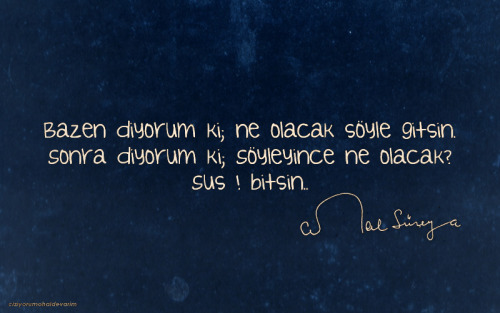 Bazen diyorum ki; ne olacak söyle gitsin.
Sonra diyorum ki; söyleyince ne olacak?
Sus ! bitsin..
Cemal Süreya